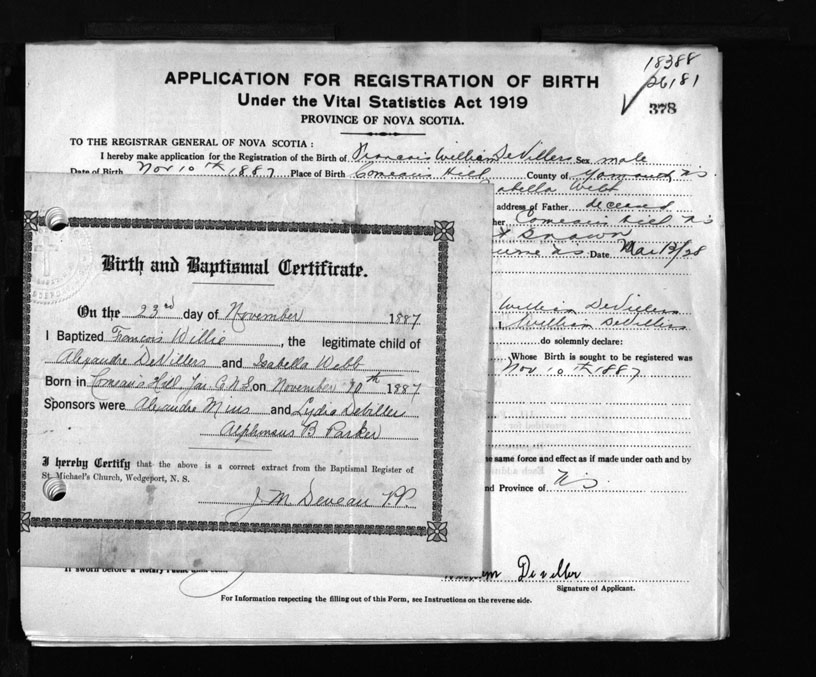 18388
26181
378
APPLICATION FOR REGISTRATION OF BIRTH
Under the Vital Statistics Act 1919
PROVINCE OF NOVA SCOTIA.
TO THE REGISTRAR GENERAL OF NOVA SCOTIA:
I hereby make application for the Registration of the Birth of Francois William DeVillers Sex male
Date of Birth Nov 10th 1887 Place of Birth Comeau's Hill County of Yarmouth N.S.
abella Webb
address of Father deceased
her Comeau's Hill N.S
Date Mar 13/28
William DeVillers
I, William DeVillers
do solemnly declare:
Whose Birth is sought to be registered was
Nov 10th 1887
he same force and effect as if made under oath and by
nd Province of N.S.
Birth and Baptismal Certificate.
On the 23rd day of November 1887
I Baptized Francois Willie, the legitimate child of
Alexandre DeVillers and Isabella Webb
Born in Comeau's Hill Yar. Co. N.S. on November 10th 1887
Sponsors were Alexandre Mius and Lydia DeViller
Alphonsus B Parker
I hereby Certify that the above is a correct extract from the Baptismal Register of
St. Michael's Church, Wedgeport, N. S.
J. M. Deveau P.P.
If sworn before a Notary Public
De viller
Signature of Applicant.
For Information respecting the filling out of this Form, see Instructions on the reverse side.